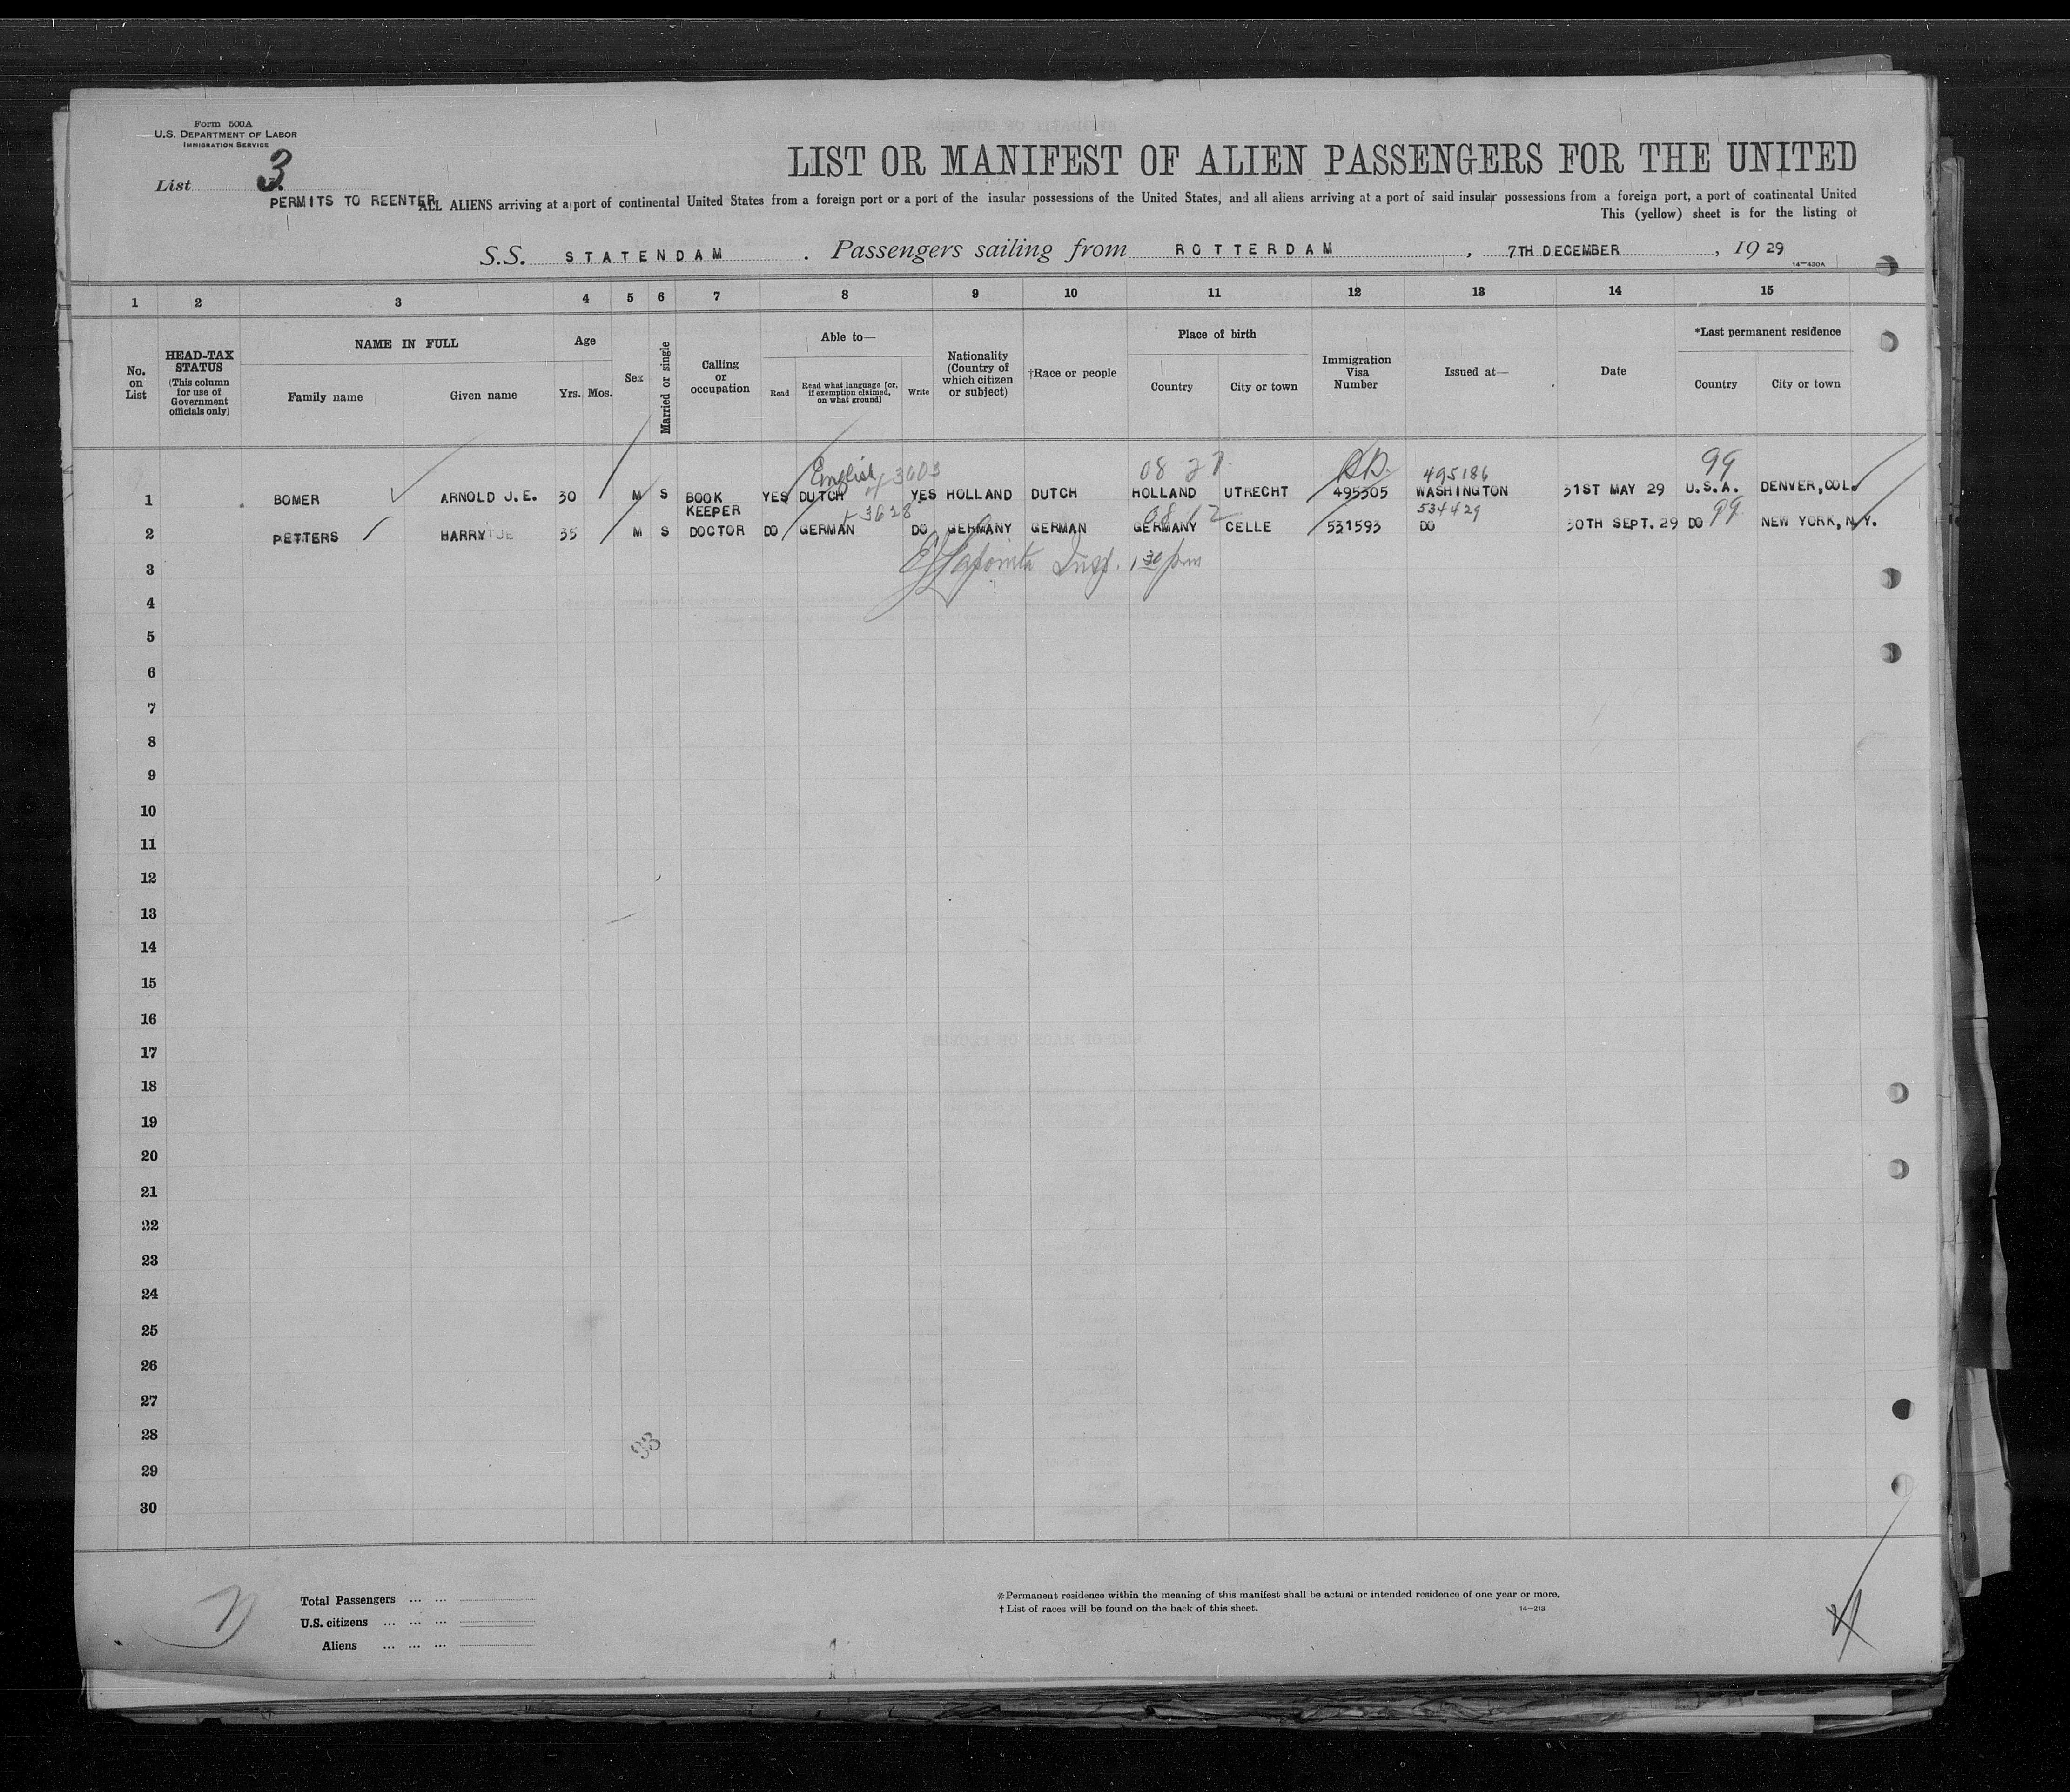 Form 500A
U.S. DEPARTMENT OF LABOR
IMMIGRATION SERVICE
List 3.
LIST OR MANIFEST OF ALIEN PASSENGERS FOR THE UNITED
PERMITS TO REENTER
ALL ALIENS arriving at a port of continental United States from a foreign port or a port of the insular possessions of the United States, and all aliens arriving at a port of said insular possessions from a foreign port, a port of continental United
This (yellow) sheet is for the listing of
S.S. STATENDAM . Passengers sailing from ROTTERDAM , 7TH DECEMBER , 19 29
14—430A
1 2 3 4 5 6 7 8 9 10 11 12 13 14 15
No. on List
HEAD-TAX STATUS (This column for use of Government officials only)
NAME IN FULL
Family name Given name
Age
Yrs. Mos.
Sex
Married or single
Calling or occupation
Able to—
Read
Read what language [or, if exemption claimed, on what ground]
Write
Nationality (Country of which citizen or subject)
†Race or people
Place of birth
Country City or town
Immigration Visa Number
Issued at—
Date
*Last permanent residence
Country City or town
English 3603 08 27 495186 99
1 BOMER ARNOLD J.E. 30 M S BOOK KEEPER YES DUTCH YES HOLLAND DUTCH HOLLAND UTRECHT 495305 WASHINGTON 31ST MAY 29 U.S.A. DENVER, COL.
3628 08 12 534429 99
2 PETTERS HARRY 35 M S DOCTOR DO GERMAN DO GERMANY GERMAN GERMANY CELLE 531593 DO 30TH SEPT. 29 DO NEW YORK, N.Y.
3 Insp. 1 30 pm
4
5
6
7
8
9
10
11
12
13
14
15
16
17
18
19
20
21
22
23
24
25
26
27
28
93
29
30
Total Passengers ... ...
U.S. citizens ... ... ...
Aliens ... ... ...
*Permanent residence within the meaning of this manifest shall be actual or intended residence of one year or more.
† List of races will be found on the back of this sheet.
14—213